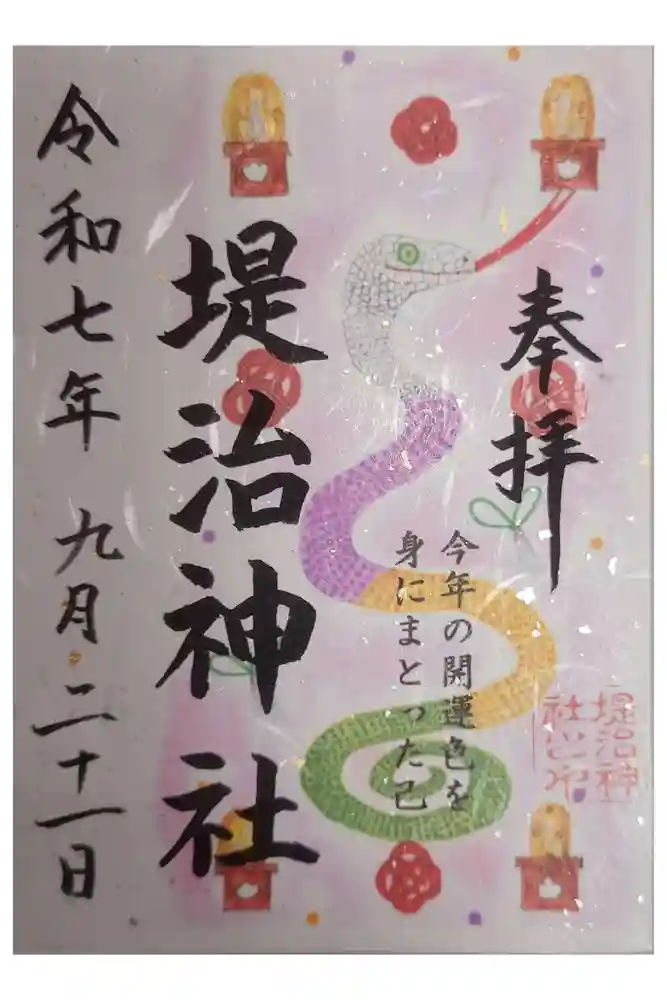 奉拝
今年の開運色を
身にまとった己
堤治神社
令和七年 九月二十一日
堤治神